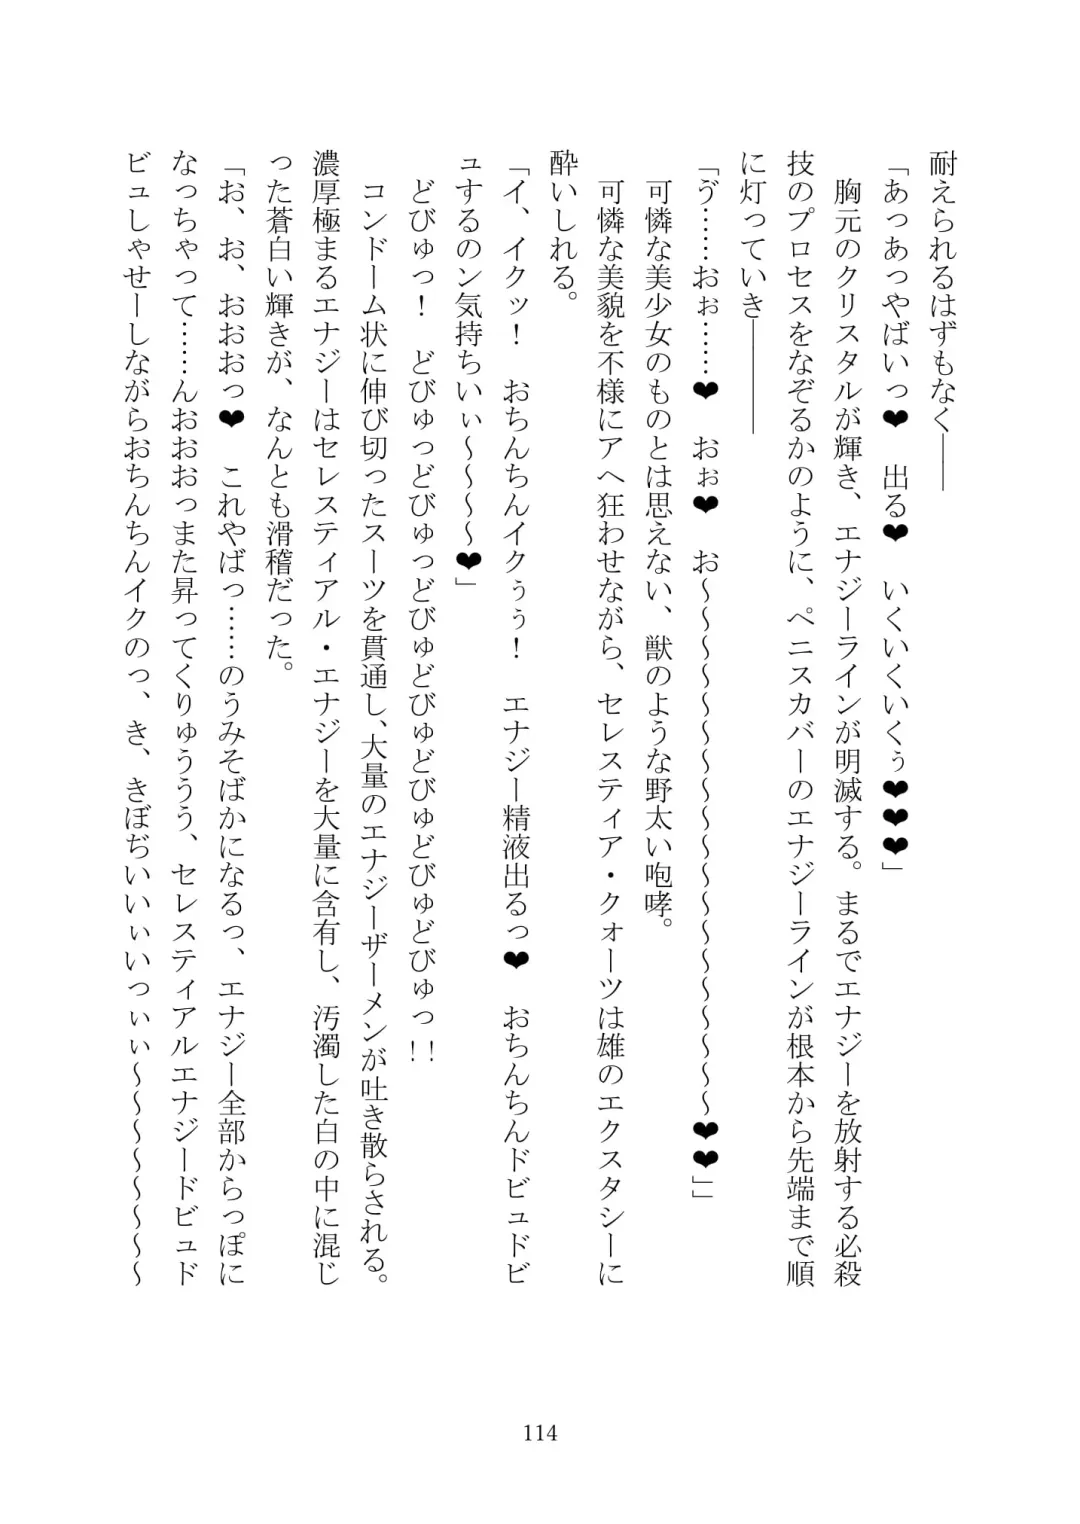 耐えられるはずもなく――
「あっあっやばいっ❤　出る❤　いくいくいくぅ❤❤❤」
　胸元のクリスタルが輝き、エナジーラインが明滅する。まるでエナジーを放射する必殺
技のプロセスをなぞるかのように、ペニスカバーのエナジーラインが根本から先端まで順
に灯っていき――――
「ゔ……おぉ……❤　おぉ❤　お～～～～～～～～～～～～～～～～～～～❤❤」
　可憐な美少女のものとは思えない、獣のような野太い咆哮。
　可憐な美貌を不様にアヘ狂わせながら、セレスティア・クォーツは雄のエクスタシーに
酔いしれる。
「イ、イクッ！　おちんちんイクぅぅ！　エナジー精液出るっ❤　おちんちんドビュドビ
ュするのン気持ちいぃ～～～～❤」
　どびゅっ！　どびゅっどびゅっどびゅどびゅどびゅどびゅどびゅっ!!
　コンドーム状に伸び切ったスーツを貫通し、大量のエナジーザーメンが吐き散らされる。
濃厚極まるエナジーはセレスティアル・エナジーを大量に含有し、汚濁した白の中に混じ
った蒼白い輝きが、なんとも滑稽だった。
「お、お、おおおっ❤　これやばっ……のうみそばかになるっ、エナジー全部からっぽに
なっちゃって……んおおおっまた昇ってくりゅううう、セレスティアルエナジードビュド
ビュしゃせーしながらおちんちんイクのっ、き、きぼぢいいぃいっぃぃ～～～～～～～～
114